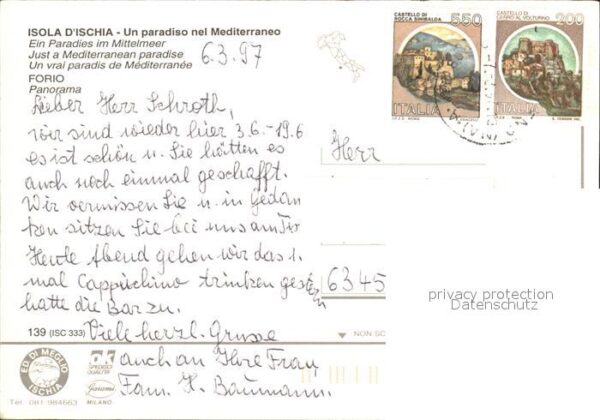 ISOLA D'ISCHIA - Un paradiso nel Mediterraneo
Ein Paradies im Mittelmeer
Just a Mediterranean paradise
Un vrai paradis de Méditerranée
FORIO
Panorama
6.3.97
Lieber Herr Schroth,
wir sind wieder hier 3.6.-19.6
es ist schön u. Sie hätten es
auch noch einmal geschafft.
Wir vermissen Sie u. in Gedan
ken sitzen Sie bei uns am
Heute Abend gehen wir das 1.
mal Cappuchino trinken gestern
hatte die Bar zu.
Viele herzl. Grüsse
auch an Ihre Frau
Fam. H. Baumann.
139 (ISC 333)
ED. DI MEGLIO
ISCHIA
Tel. 081 984663
OK
SPEDISCI
QUALITA'
MILANO
CASTELLO DI
ROCCA SINIBALDA
550
ITALIA
I.P.Z.S. - ROMA
CASTELLO DI
CERRO AL VOLTURNO
200
ITALIA
I.P.Z.S. - ROMA
(NA)
Herr
6345
NON SC
privacy protection
Datenschutz